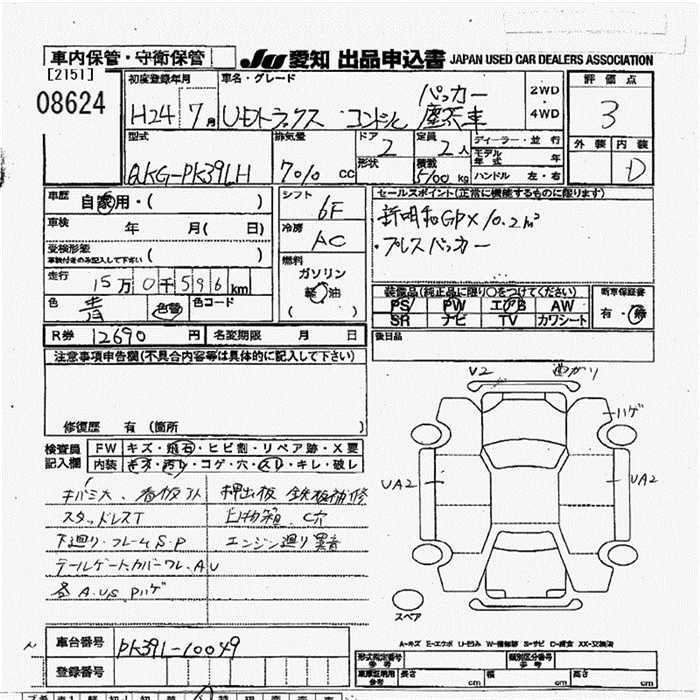 車内保管・守衛保管
JU 愛知 出品申込書 JAPAN USED CAR DEALERS ASSOCIATION
[2151]
08624
初度登録年月 車名・グレード 評価点
H24 7月 UDトラックス コンドル パッカー 塵芥車 2WD ・ 4WD 3
型式 排気量 ドア 定員 ディーラー・並行 外装 内装
QKG-PK39LH 7010 cc 2 2人 モデル年式 年
形状 積載 5100 kg ハンドル 左・右 D
車歴 自家用・( ) シフト 6F セールスポイント(正常に機能するものに限ります)
車検 年 月( 日) 冷房 AC 新明和GPX 10.2m³
受検形態 ・プレスパッカー
車検付きのみ記入して下さい ( )
走行 15万0千596km 燃料 ガソリン 軽油 ( )
色 青 色替 色コード
装備品(純正品に限り○をつけてください) 新車保証書
PS PW エアB AW 有・無
SR ナビ TV カワシート
R券 12690 円 名変期限 月 日 後日品
注意事項申告欄(不具合内容等は具体的に記入して下さい)
修復歴 有 (箇所 )
検査員記入欄 FW キズ・飛石・ヒビ割・リペア跡・X要
内装 キズ・汚レ・コゲ・穴・スレ・キレ・破レ
キバミ大、看板アト 押出板 鉄板補修
スタッドレスT 白物箱 C穴
下廻り・フレームS・P エンジン廻り異音
テールゲートカバーワレ、A、U
各A.U.S Pハゲ
V2 曲がり
ハゲ
UA2 UA2
スペア
A-キズ E-エクボ U-凹み W-補修跡 S-サビ C-腐食 XX-交換済
車台番号 PK39L-10049
登録番号
形式指定番号 参考 類別区分番号 参考
車庫証明用 参考 長さ cm 幅 cm 高さ cm